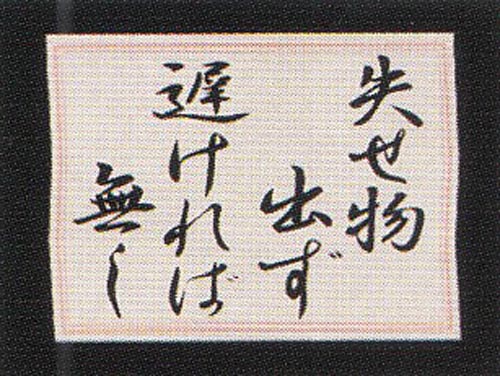 失せ物
出ず
遅ければ
無し